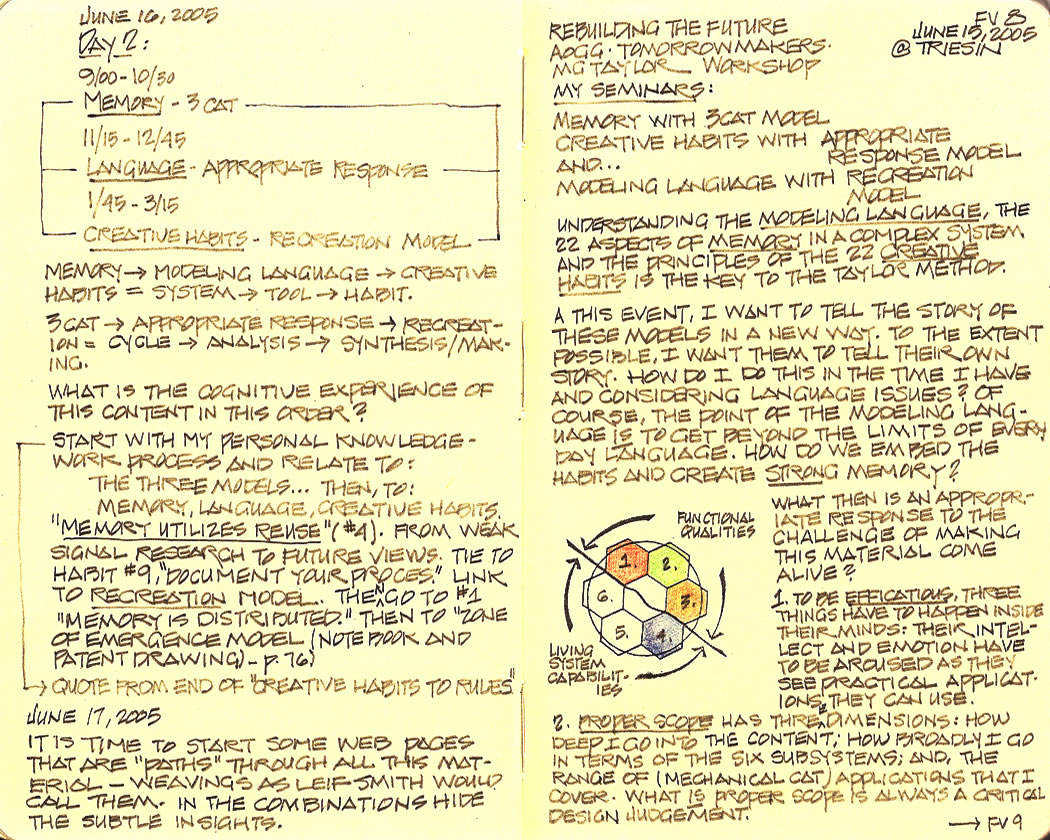 JUNE 16, 2005
DAY 2:
9/00-10/30
MEMORY - 3 CAT
11/15 - 12/45
LANGUAGE - APPROPRIATE RESPONSE
1/45 - 3/15
CREATIVE HABITS - RECREATION MODEL
MEMORY → MODELING LANGUAGE → CREATIVE
HABITS = SYSTEM → TOOL → HABIT.
3CAT → APPROPRIATE RESPONSE → RECREAT-
ION = CYCLE → ANALYSIS → SYNTHESIS/MAK-
ING.
WHAT IS THE COGNITIVE EXPERIENCE OF
THIS CONTENT IN THIS ORDER?
START WITH MY PERSONAL KNOWLEDGE-
WORK PROCESS AND RELATE TO:
THE THREE MODELS... THEN, TO:
MEMORY, LANGUAGE, CREATIVE HABITS.
"MEMORY UTILIZES REUSE" (#4). FROM WEAK
SIGNAL RESEARCH TO FUTURE VIEWS. TIE TO
HABIT #9, "DOCUMENT YOUR PROCES." LINK
TO RECREATION MODEL. THEN GO TO #1
"MEMORY IS DISTRIBUTED." THEN TO "ZONE
OF EMERGENCE MODEL (NOTEBOOK AND
PATENT DRAWING) - p. 76)
QUOTE FROM END OF "CREATIVE HABITS TO RULES".
JUNE 17, 2005
IT IS TIME TO START SOME WEB PAGES
THAT ARE "PATHS" THROUGH ALL THIS MAT-
ERIAL - WEAVINGS AS LEIF SMITH WOULD
CALL THEM. IN THE COMBINATIONS HIDE
THE SUBTLE INSIGHTS.
FV 8
JUNE 15, 2005
@ TRIESIN
REBUILDING THE FUTURE
AOGG · TOMORROWMAKERS ·
MG TAYLOR WORKSHOP
MY SEMINARS:
MEMORY WITH 3CAT MODEL
CREATIVE HABITS WITH APPROPRIATE
AND... RESPONSE MODEL
MODELING LANGUAGE WITH RECREATION
MODEL
UNDERSTANDING THE MODELING LANGUAGE, THE
22 ASPECTS OF MEMORY IN A COMPLEX SYSTEM
AND THE PRINCIPLES OF THE 22 CREATIVE
HABITS IS THE KEY TO THE TAYLOR METHOD.
A THIS EVENT, I WANT TO TELL THE STORY OF
THESE MODELS IN A NEW WAY. TO THE EXTENT
POSSIBLE, I WANT THEM TO TELL THEIR OWN
STORY. HOW DO I DO THIS IN THE TIME I HAVE
AND CONSIDERING LANGUAGE ISSUES? OF
COURSE, THE POINT OF THE MODELING LANG-
UAGE IS TO GET BEYOND THE LIMITS OF EVERY
DAY LANGUAGE. HOW DO WE EMBED THE
HABITS AND CREATE STRONG MEMORY?
WHAT THEN IS AN APPROPR-
IATE RESPONSE TO THE
CHALLENGE OF MAKING
THIS MATERIAL COME
ALIVE?
FUNCTIONAL
QUALITIES
1.
2.
3.
4.
5.
6.
LIVING
SYSTEM
CAPABILIT-
IES
1. TO BE EFFICATIOUS, THREE
THINGS HAVE TO HAPPEN INSIDE
THEIR MINDS: THEIR INTEL-
LECT AND EMOTION HAVE
TO BE AROUSED AS THEY
SEE PRACTICAL APPLICAT-
IONS THEY CAN USE.
2. PROPER SCOPE HAS THREE DIMENSIONS: HOW
DEEP I GO INTO THE CONTENT; HOW BROADLY I GO
IN TERMS OF THE SIX SUBSYSTEMS; AND, THE
RANGE OF (MECHANICAL CAT) APPLICATIONS THAT I
COVER. WHAT IS PROPER SCOPE IS ALWAYS A CRITICAL
DESIGN JUDGEMENT.
→ FV 9